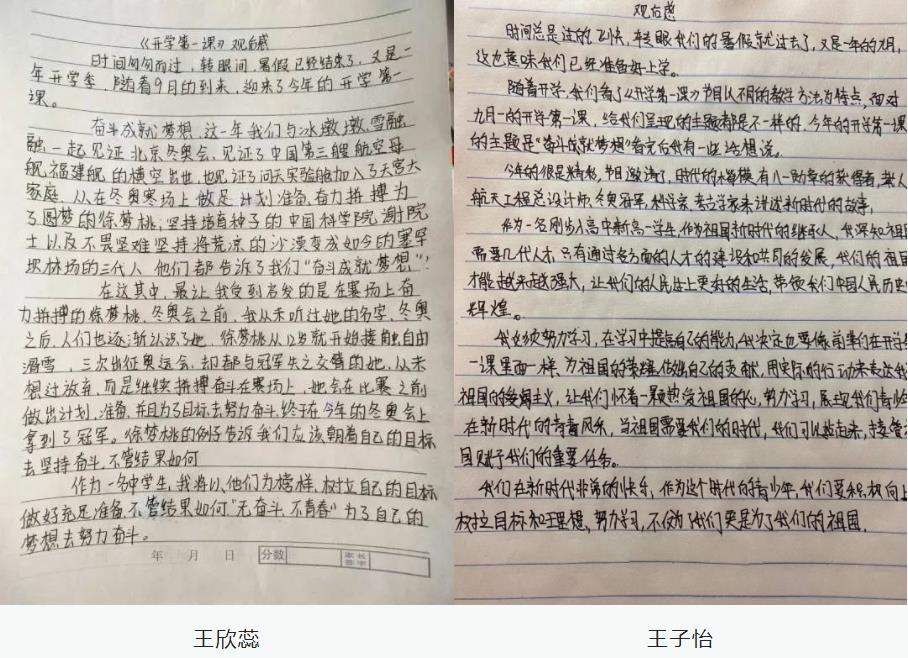 《开学第一课》观后感
时间匆匆而过，转眼间，暑假已经结束了，又是一
年开学季，随着9月的到来，迎来了今年的开学第一
课。
奋斗成就梦想，这一年我们与冰墩墩、雪融
融一起见证北京冬奥会，见证了中国第三艘航空母
舰福建舰的横空出世，也见证了问天实验舱加入了天宫大
家庭，从在冬奥寒场上做足计划准备，奋力拼搏为
了圆梦的徐梦桃；坚持培育种子的中国科学院谢院
士以及不畏坚难坚持将荒凉的沙漠变成如今的塞罕
坝林场的三代人，他们都告诉了我们“奋斗成就梦想”！
在这其中，最让我受到启发的是在赛场上奋
力拼搏的徐梦桃，冬奥会之前，我从未听过她的名字，冬奥
之后，人们也逐渐认识了她，徐梦桃从12岁就开始接触自由
滑雪，三次出征奥运会，却都与冠军失之交臂的她，从未
想过放弃，而是继续拼搏奋斗在赛场上，她会在比赛之前
做出计划，准备，并且为了目标去努力奋斗，终于在今年的冬奥会上
拿到了冠军。徐梦桃的例子告诉我们应该朝着自己的目标
去坚持奋斗，不管结果如何
作为一名中学生，我将以他们为榜样，树立自己的目标
做好充足准备，不管结果如何“无奋斗，不青春”为了自己的
梦想去努力奋斗。
年 月 日 分数 家长签字
观后感
时间总是过的飞快，转眼我们的暑假就过去了，又是一年的九月，
这也意味我们已经准备好上学。
随着开学，我们看了《开学第一课》节目以不同的教学方法为特点，面对
九月一的开学第一课，给我们呈现的主题都是不一样的，今年的开学第一课
的主题是“奋斗成就梦想”看完后我有一些话想说。
今年的很是精彩，节目邀请了，时代的楷模，有八一勋章的获得者，载人
航天工程总设计师，冬奥冠军，科学家，考古学家来讲述新时代的故事，
我为一名刚步入高中新高一学生，作为祖国新时代的继承人，我深知祖国
需要几代人才，只有通过多方面的人才的建设和共同的发展，我们的祖国
才能越来越强大，让我们的人民过上更好的生活，带领我们中国人民历史
辉煌。
我必须努力学习，在学习中提高自己的能力，我决定也要像前辈们在开学第
一课里面一样，为祖国的荣耀做出自己的贡献，用实际的行动来表达我
祖国的爱国主义，让我们怀着一颗热爱祖国的心，努力学习，展现我们青少
在新时代的青春风采，当祖国需要我们的时代，我们可以站起来，接受
国赋予我们的重要任务。
我们在新时代非常的快乐，作为这个时代的青少年，我们要积极向上
树立目标和理想，努力学习，不仅为了我们更是为了我们的祖国.
王欣蕊
王子怡